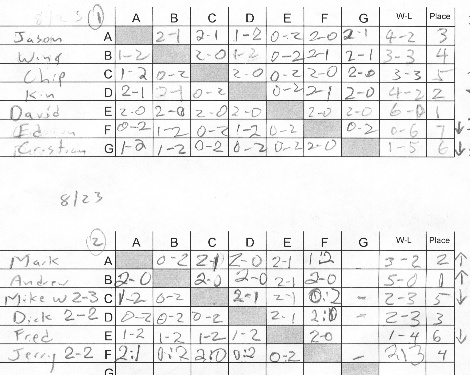 8/23 1 A B C D E F G W-L Place
Jason A 2-1 2-1 1-2 0-2 2-0 2-1 4-2 3
Wing B 1-2 2-0 1-2 0-2 2-1 2-1 3-3 4
Chip C 1-2 0-2 2-0 0-2 2-0 2-0 3-3 5
Kin D 2-1 2-1 0-2 0-2 2-1 2-0 4-2 2
David E 2-0 2-0 2-0 2-0 2-0 2-0 6-0 1
Ed F 0-2 1-2 0-2 1-2 0-2 0-2 0-6 7 ↓
Cristian G 1-2 1-2 0-2 0-2 0-2 2-0 1-5 6 ↓
8/23
2 A B C D E F G W-L Place
Mark A 0-2 2-1 2-0 2-1 1-2 3-2 2 ↑
Andrew B 2-0 2-0 2-0 2-1 2-0 5-0 1 ↑
Mike W 2-3 C 1-2 0-2 2-1 2-1 0-2 - 2-3 5 ↓
Dick 2-2 D 0-2 0-2 1-2 2-1 2-0 - 2-3 3
Fred E 1-2 1-2 1-2 1-2 2-0 1-4 6 ↓
Jerry 2-2 F 2-1 0-2 2-0 0-2 0-2 - 2-3 4
G